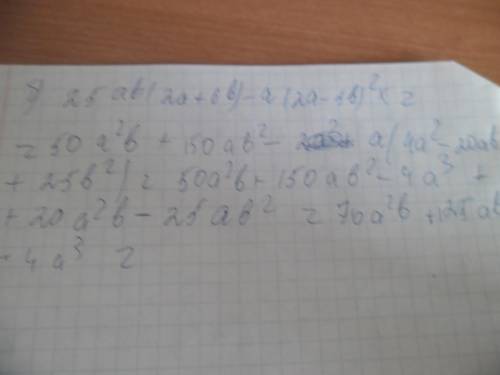 8) 25ab(2a+6b)-a(2a-5b)²=
=50a²b + 150ab² - a(4a²-20ab
+ 25b²)= 50a²b+150ab²-4a³ +
+ 20a²b - 25ab² = 70a²b +125ab
- 4a³ =